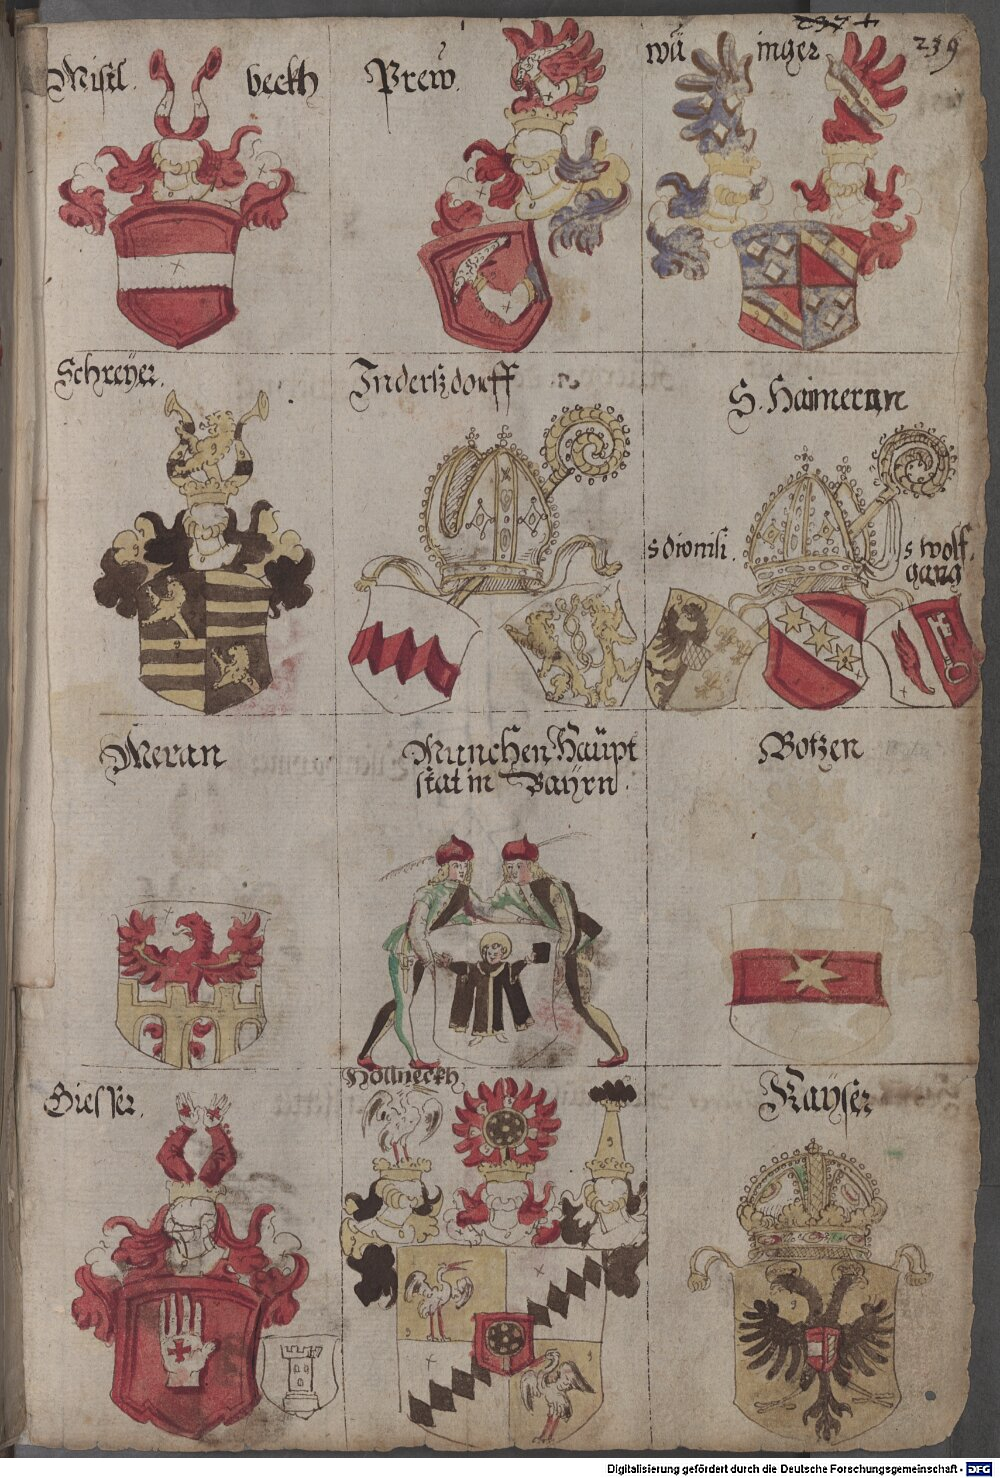 239
Mistl. beckh
Prew.
wü inger
Schreÿer.
Inderßdorff
S. Haimeran
s dionisi.
s wolf.
gang
Meran
Munchen Haüpt
stat in Baÿrn.
Botzen
Giesser.
Höllneckh
Kaÿser
Digitalisierung gefördert durch die Deutsche Forschungsgemeinschaft - DFG